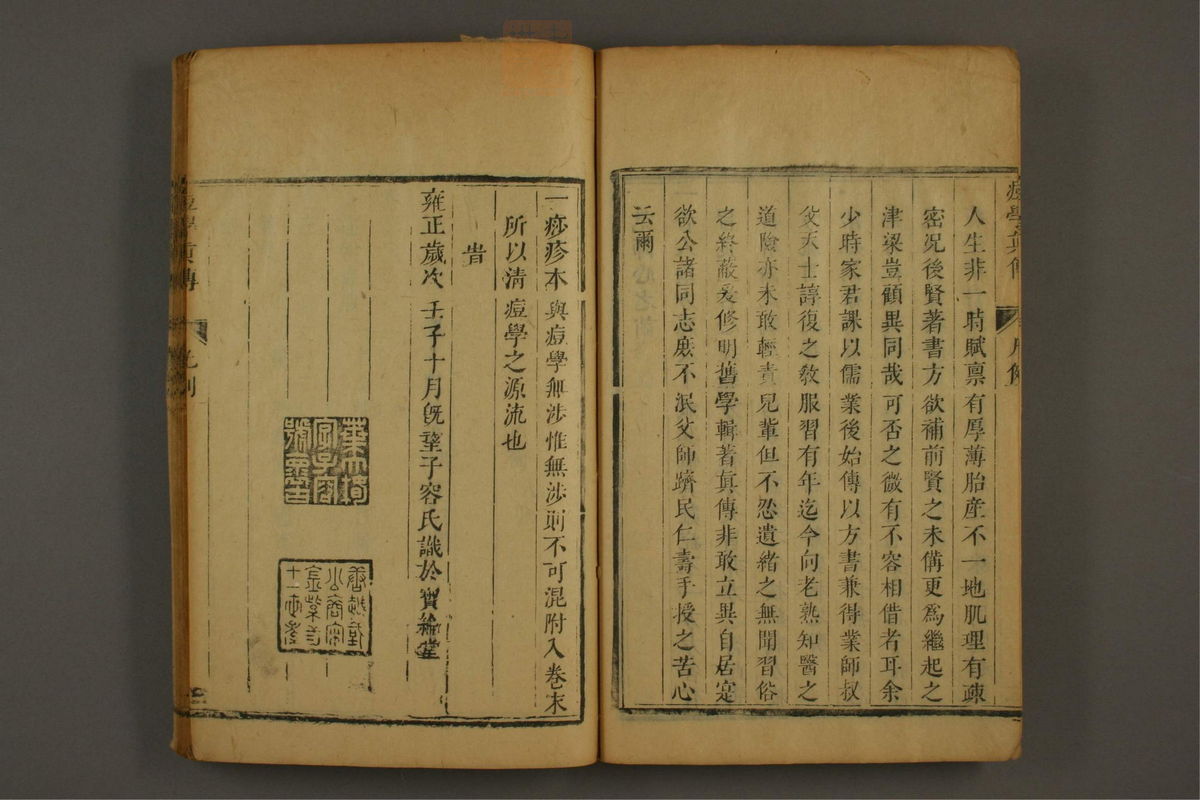 人生非一時賦禀有厚薄胎産不一地肌理有疎
密況後賢著書方欲補前賢之未備更爲繼起之
津梁豈顧異同哉可否之微有不容相借者耳余
少時家君課以儒業後始傳以方書兼得業師叔
父天士諄復之教服習有年迄今向老熟知醫之
道險亦未敢輕責兒輩但不忍遺緒之無聞習俗
之終蔽爰修明舊學輯著眞傳非敢立異自居寔
欲公諸同志庶不泯父師躋民仁壽手授之苦心
云爾
一痧疹本與痘學無涉惟無涉則不可混附入卷末
所以清痘學之源流也
旹
雍正歲次壬子十月旣望子容氏識於寶綸堂
痘學眞傳
凡例